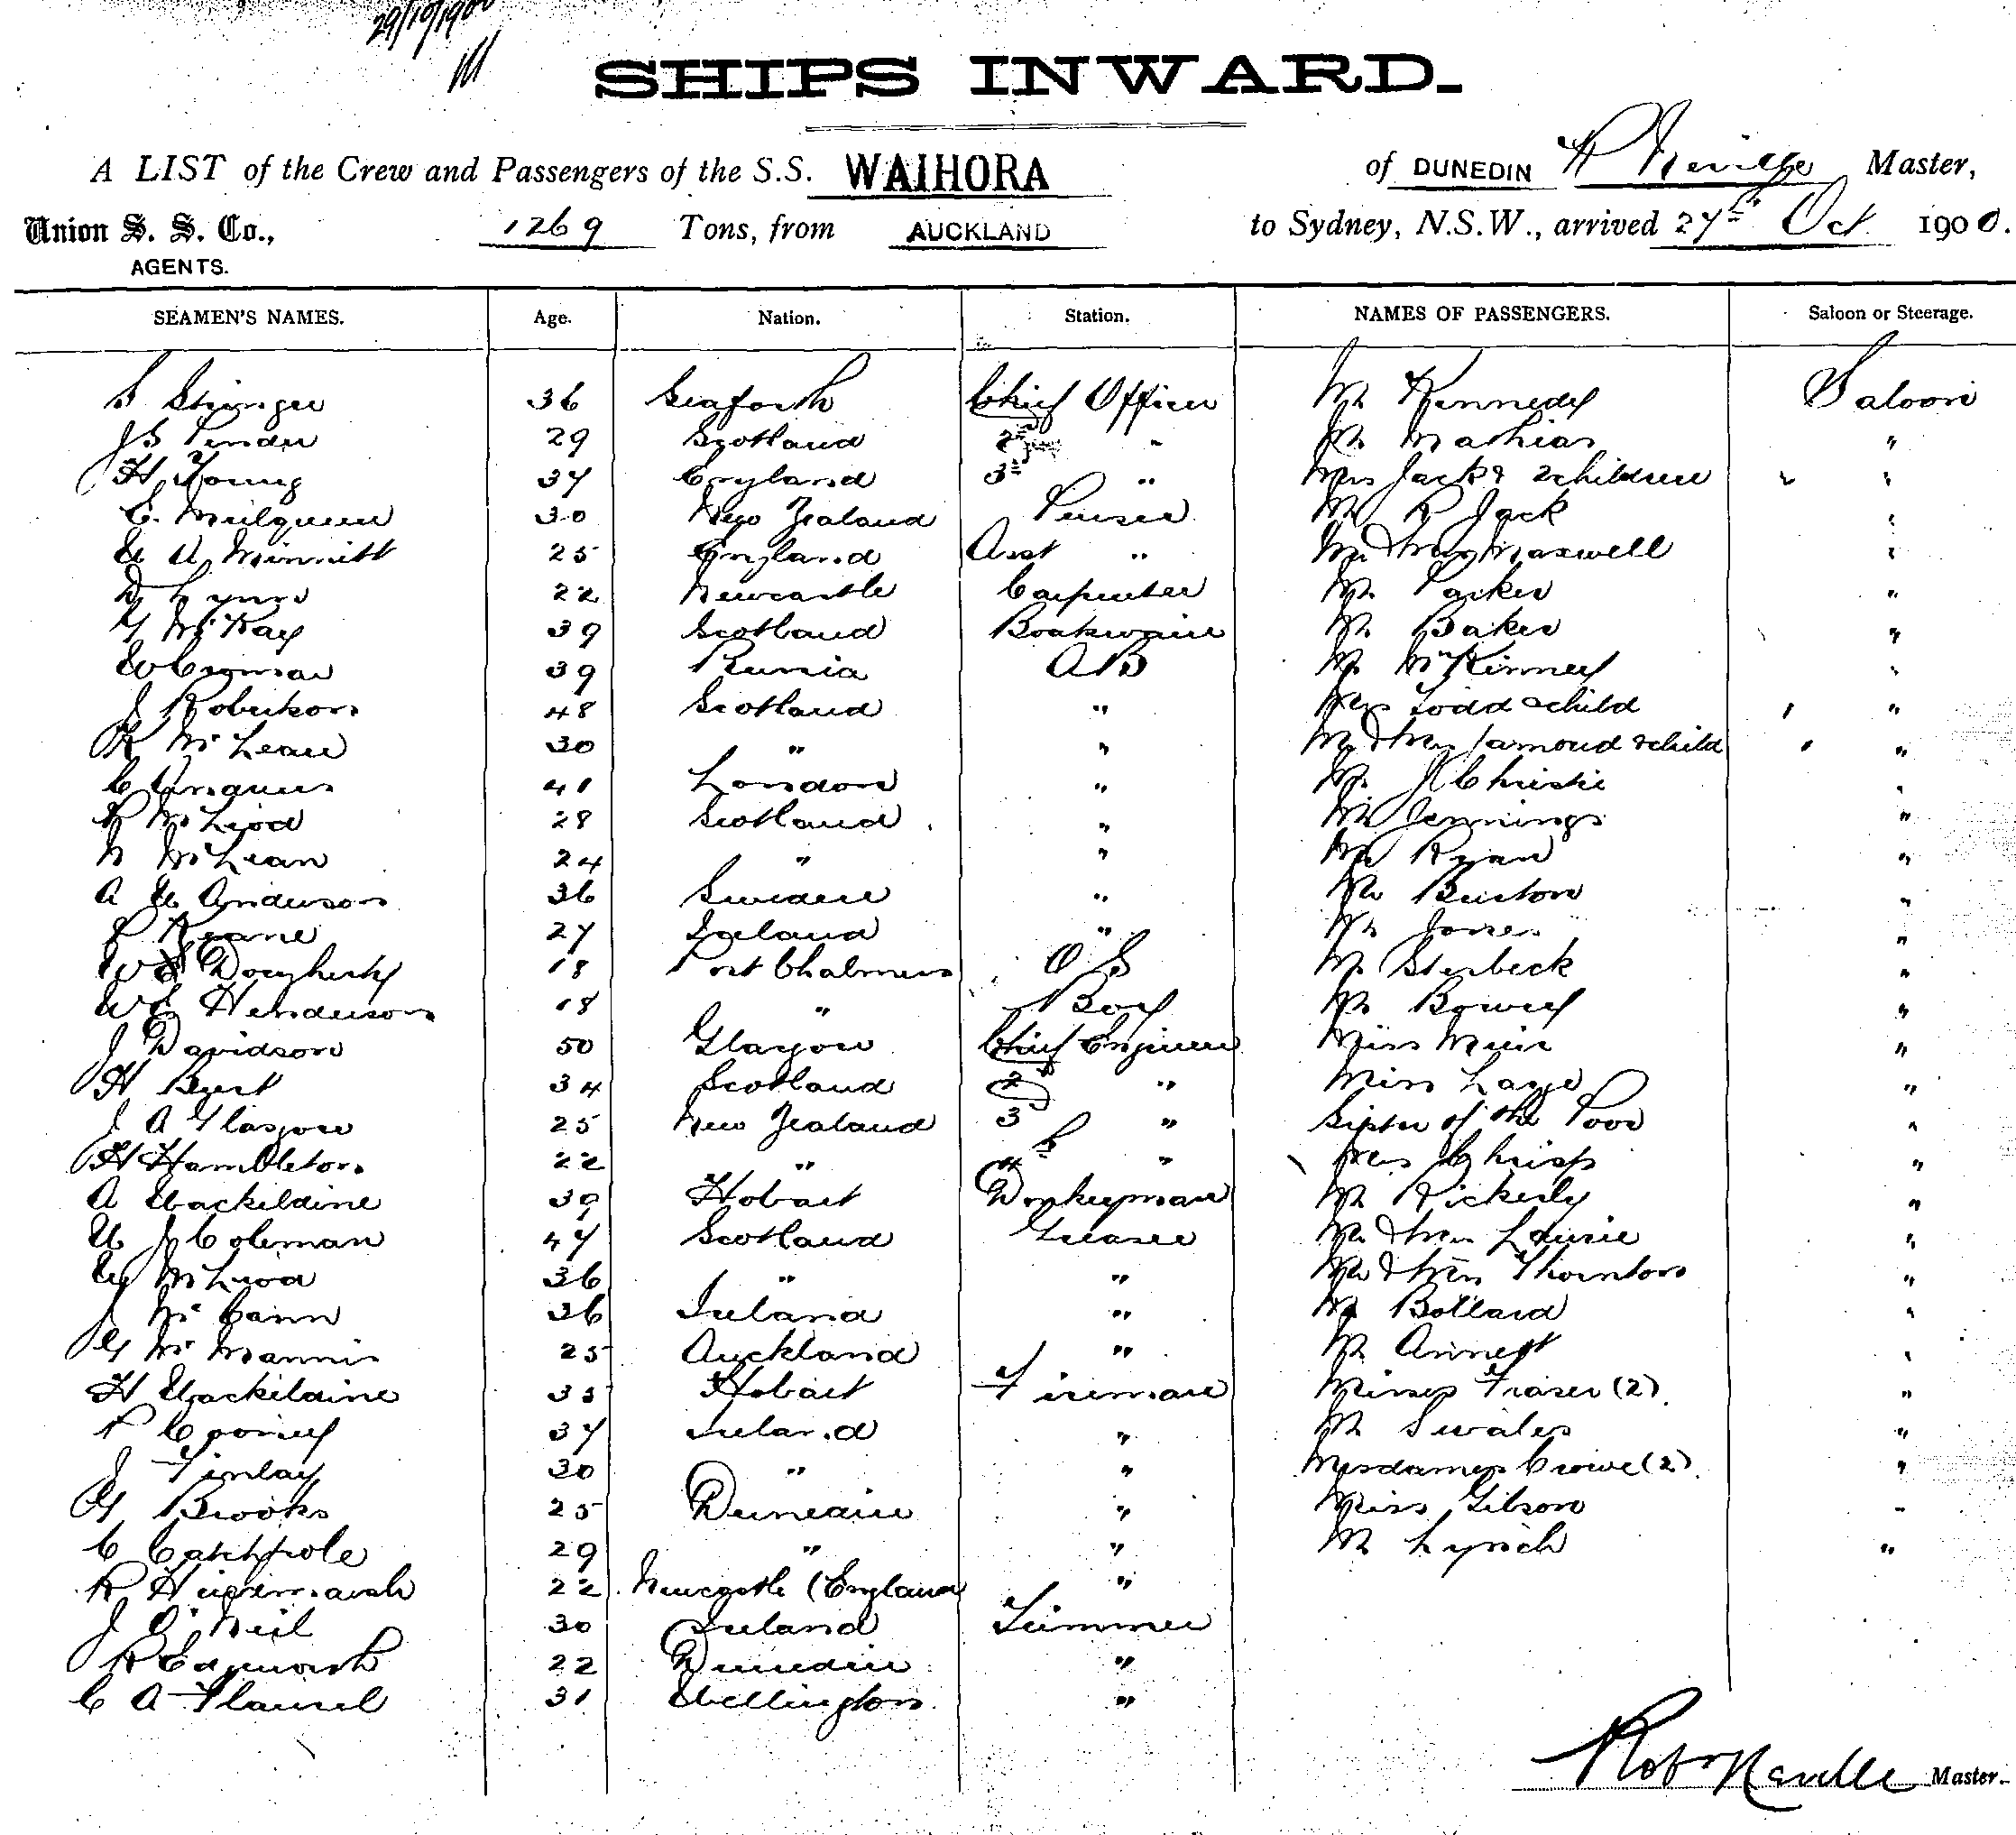 29/10/1900
SHIPS INWARD.
A LIST of the Crew and Passengers of the S.S. WAIHORA of DUNEDIN R Neville Master,
Union S. S. Co., AGENTS. 1269 Tons, from AUCKLAND to Sydney, N.S.W., arrived 27th Oct 1900.
SEAMEN'S NAMES. Age. Nation. Station. NAMES OF PASSENGERS. Saloon or Steerage.
S Stringer 36 Seaforth Chief Officer Mr Kennedy Saloon
JS Pender 29 Scotland 2nd " Mr Mathias "
H Young 37 England 3rd " Mrs Jack & 2 children " "
C. Mulqueen 30 New Zealand Purser Mr R Jack "
A Minnitt 25 England Asst " Mr & Mrs Maxwell "
D Lyons 22 Newcastle Carpenter Mr Parker "
McKay 39 Scotland Boatswain Mr Baker "
39 Russia AB Mr McKinney "
J Robertson 48 Scotland " Mrs Todd & child " "
K McLean 30 " " Mr & Mrs & child " "
C 41 London " Mr J Christie "
R McLeod 28 Scotland " Mr Jennings "
N McLean 24 " " Mr Ryan "
A W Anderson 36 Sweden " Mr Buston "
P Keane 27 Ireland " Mr Jones "
W Dougherty 18 Port Chalmers O S Mr Sterbeck "
WC Henderson 18 " Boy Mr Bowey "
J Davidson 50 Glasgow Chief Engineer Miss Muir "
H Burt 34 Scotland 2nd " Miss Laye "
J A Glasgow 25 New Zealand 3 " Sister of the Poor "
H Hambleton 22 " 4th " Mrs Chrisp "
A Wackildine 39 Hobart Donkeyman Mr Rickerly "
W J Coleman 47 Scotland Greaser Mr & Mrs Laurie "
W McLeod 36 " " Mr & Mrs Thornton "
J McCann 36 Ireland " Mr Bollard "
G McMannis 25 Auckland " Mr Annett "
H Wackildine 35 Hobart Fireman Misses Fraser (2) "
P Cooney 37 Ireland " Mr Swales "
J Finlay 30 " " Mesdames Crowe (2) "
G Brooks 25 Dunedin " Miss Gibson "
C Catchpole 29 " " Mr Lynch "
R Hindmarsh 22 Newcastle (England "
J O'Neil 30 Ireland Trimmer
R Edgeworth 22 Dunedin "
C A 31 Wellington "
Robt Neville Master.